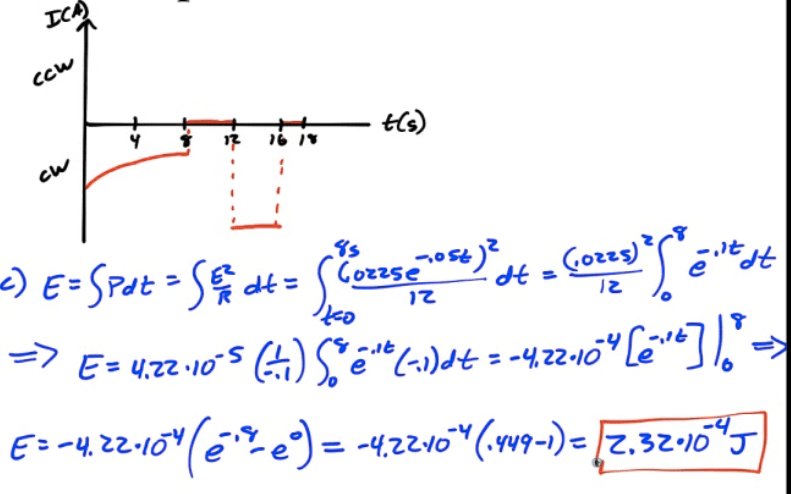 I(A)
CCW
t(s)
4 8 12 16 18
CW
c) E = ∫Pdt = ∫ E²/R dt = ∫_{t=0}^{8s} (.0225e^{-.05t})²/12 dt = (.0225)²/12 ∫_0^8 e^{-.1t} dt
=> E = 4.22·10^{-5} (1/-.1) ∫_0^8 e^{-.1t} (-.1)dt = -4.22·10^{-4} [e^{-.1t}] |_0^8 =>
E = -4.22·10^{-4} (e^{-.8} - e^0) = -4.22·10^{-4} (.449-1) = 2.32·10^{-4} J